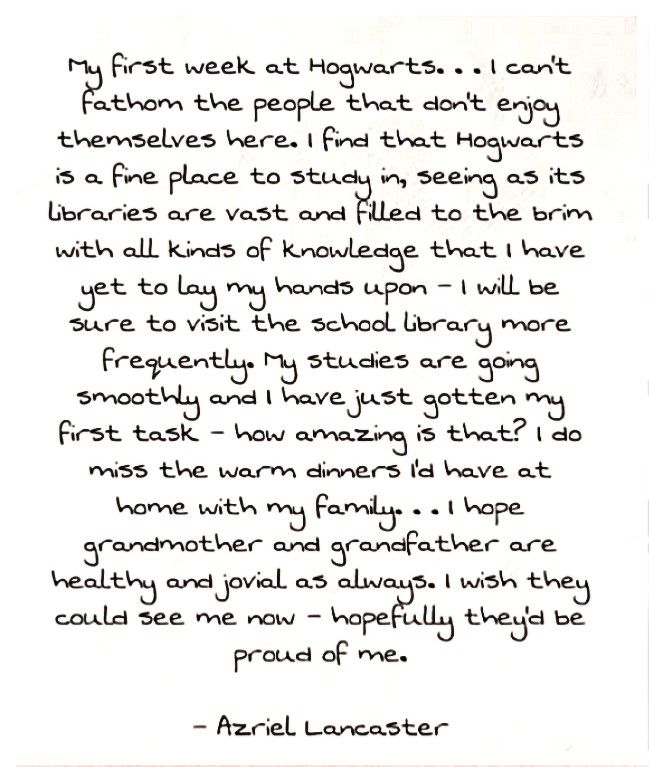 My first week at Hogwarts. . . I can't
fathom the people that don't enjoy
themselves here. I find that Hogwarts
is a fine place to study in, seeing as its
libraries are vast and filled to the brim
with all kinds of knowledge that I have
yet to lay my hands upon - I will be
sure to visit the school library more
frequently. My studies are going
smoothly and I have just gotten my
first task - how amazing is that? I do
miss the warm dinners I'd have at
home with my family. . . I hope
grandmother and grandfather are
healthy and jovial as always. I wish they
could see me now - hopefully they'd be
proud of me.
- Azriel Lancaster